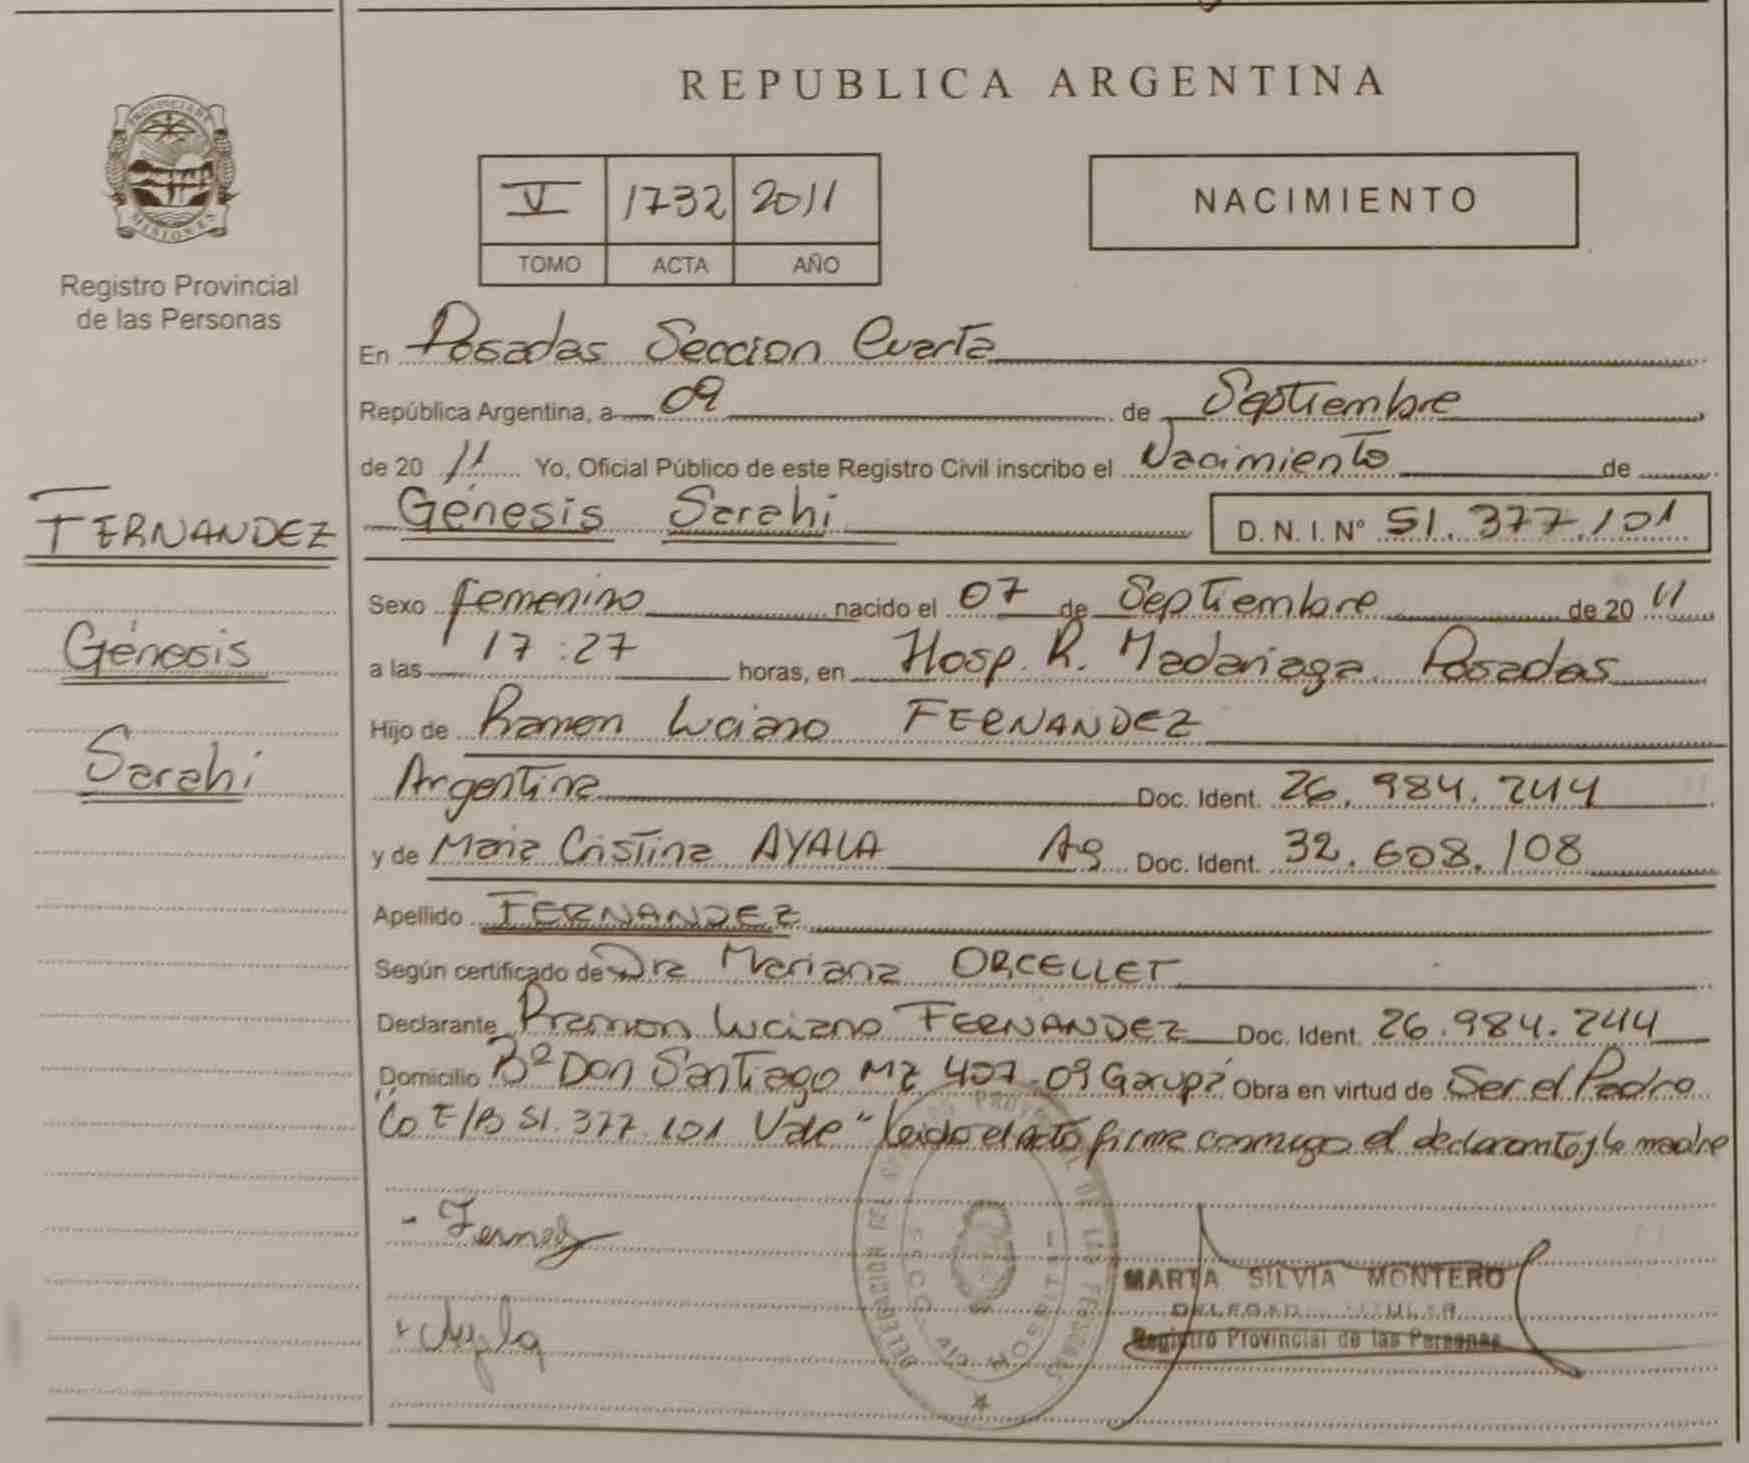 REPUBLICA ARGENTINA
PROVINCIA DE MISIONES
Registro Provincial
de las Personas
V 1732 2011
TOMO ACTA AÑO
NACIMIENTO
FERNANDEZ
Génesis
Sarahi
En Posadas Seccion Cuarta
República Argentina, a 09 de Septiembre
de 20 11 Yo, Oficial Público de este Registro Civil inscribo el Nacimiento de
Génesis Sarahi D. N. I. Nº 51.377.101
Sexo femenino nacido el 07 de Septiembre de 20 11
a las 17:27 horas, en Hosp. R. Madariaga Posadas
Hijo de Ramon Luciano FERNANDEZ
Argentina Doc. Ident. 26.984.244
y de Maria Cristina AYALA Ag Doc. Ident. 32.608.108
Apellido FERNANDEZ
Según certificado de Dra Mariana ORCELLET
Declarante Ramon Luciano FERNANDEZ Doc. Ident. 26.984.244
Domicilio Bº Don Santiago Mz 407-09 Garupá Obra en virtud de Ser el Padre
"Co E/B 51.377.101 Vale" Leido el acto firma conmigo el declarante y la madre
DELEGACION DEL REGISTRO PROVINCIAL DE LAS PERSONAS
SECC. HOSPITAL
MARTA SILVIA MONTERO
DELEGADA TITULAR
Registro Provincial de las Personas